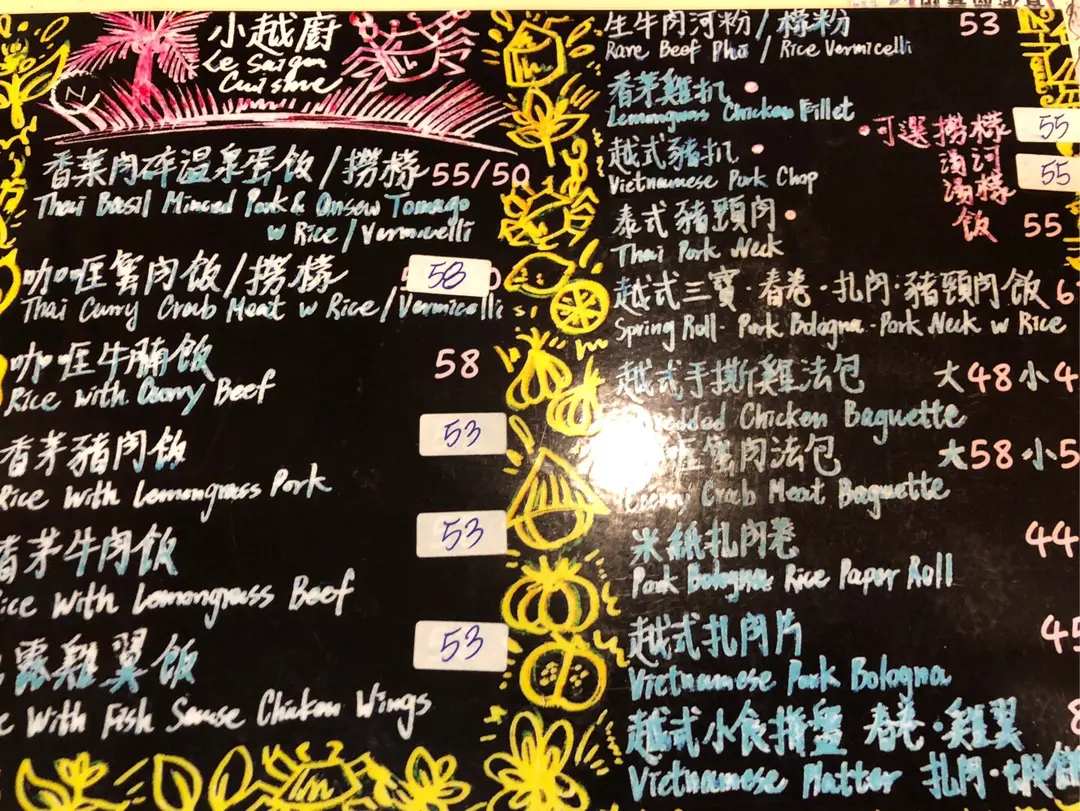 小越廚
Le Saigon
Cuisine
香葉肉碎温泉蛋飯/撈檬 55/50
Thai Basil Minced Pork & Onsen Tomago
w Rice/Vermicelli
咖喱蟹肉飯/撈檬 58
Thai Curry Crab Meat w Rice/Vermicelli
咖喱牛腩飯 58
Rice with Curry Beef
香茅豬肉飯 53
Rice with Lemongrass Pork
香茅牛肉飯 53
Rice with Lemongrass Beef
露雞翼飯 53
With Fish Sauce Chicken Wings
生牛肉河粉/檬粉 53
Rare Beef Pho / Rice Vermicelli
香茅雞扒
Lemongrass Chicken Fillet
•可選撈檬 55
湯河
湯檬
飯
越式豬扒 55
Vietnamese Pork Chop
泰式豬頸肉 55
Thai Pork Neck
越式三寶·春卷·扎肉·豬頸肉飯 6
Spring Roll · Pork Bologna · Pork Neck w Rice
越式手撕雞法包 大48小4
Chicken Baguette
蟹肉法包 大58·小5
Curry Crab Meat Baguette
米紙扎肉卷 44
Pork Bologna Rice Paper Roll
越式扎肉片 45
Vietnamese Pork Bologna
越式小食拼盤 春卷·雞翼 8
Vietnamese Platter 扎肉·